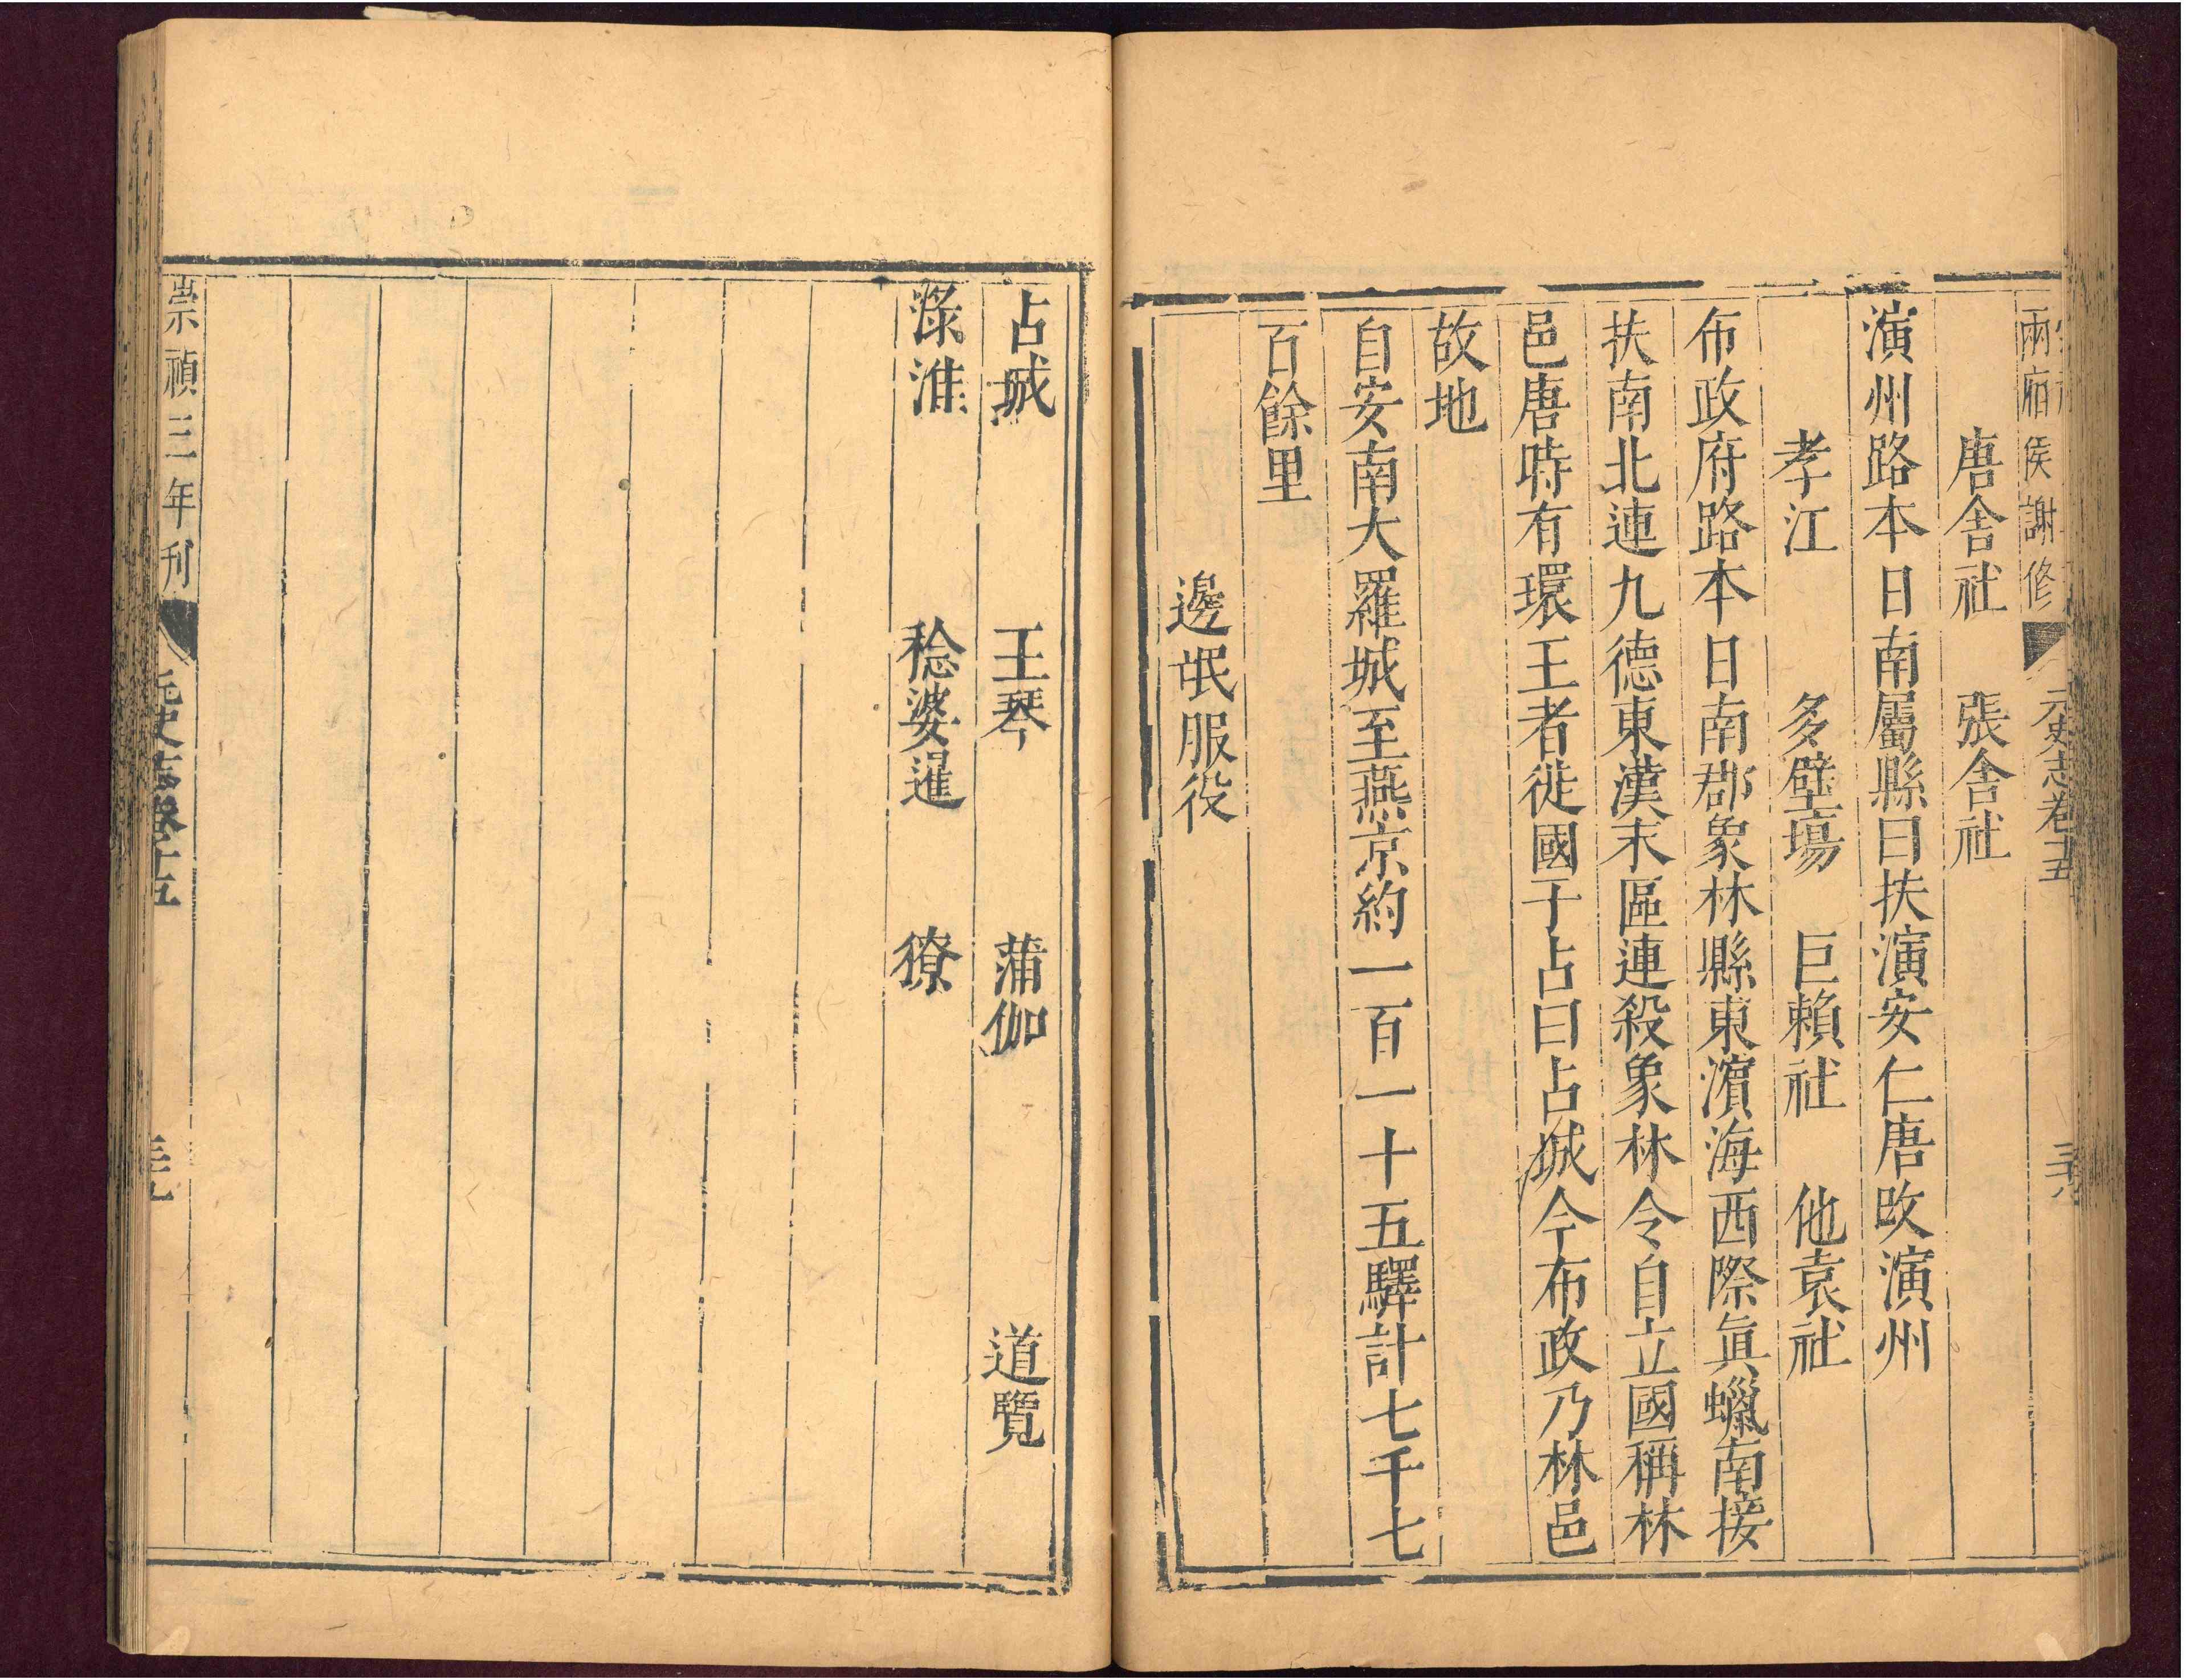 兩廂侯謝修 元史志卷十五 三十八
唐舍社 張舍社
演州路本日南屬縣曰扶演安仁唐改演州
孝江 多壁場 巨賴社 他袁社
布政府路本日南郡象林縣東濱海西際眞蠟南接
扶南北連九德東漢末區連殺象林令自立國稱林
邑唐時有環王者徙國于占曰占城今布政乃林邑
故地
自安南大羅城至燕京約一百一十五驛計七千七
百餘里
邊氓服役
占城 王琴 蒲伽 道覽
淥淮 稔婆邏 獠
崇禎三年刊 元史志卷十五 三十九